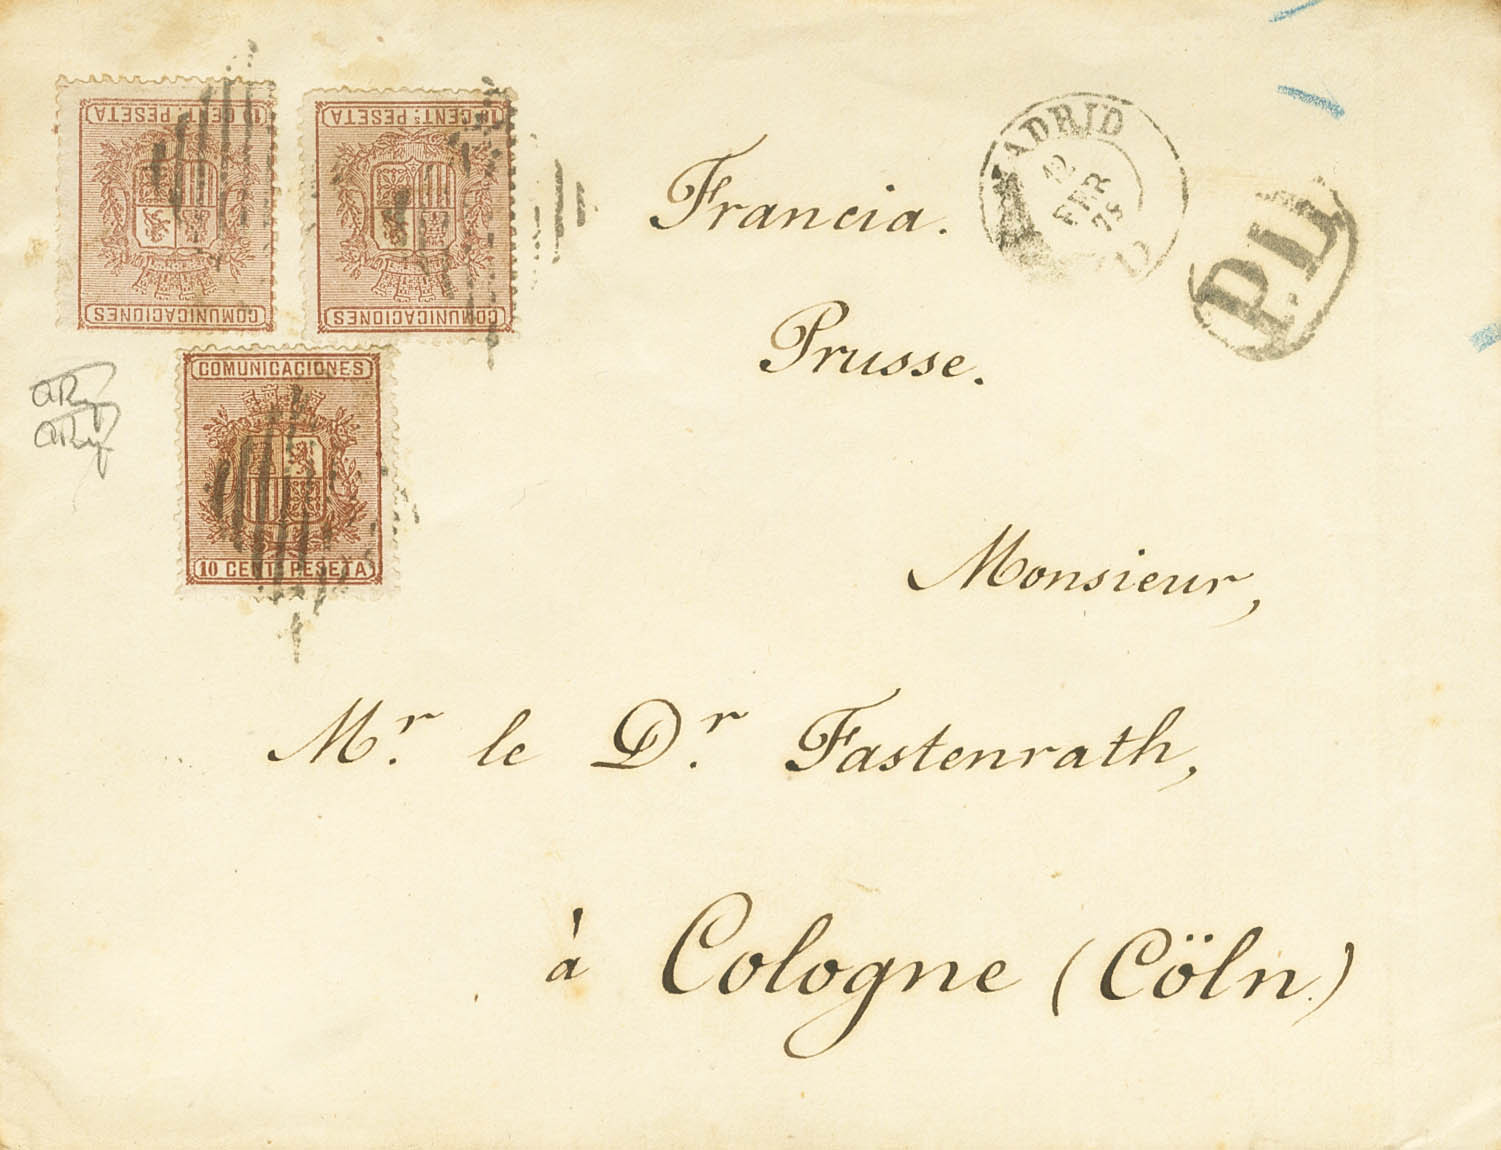 10 CENT. PESETA
COMUNICACIONES
10 CENT. PESETA
COMUNICACIONES
COMUNICACIONES
10 CENT. PESETA
MADRID
12
FEB
75
P.D.
Francia.
Prusse.
Monsieur,
Mr. le Dr. Fastenrath,
à Cologne (Cöln.)